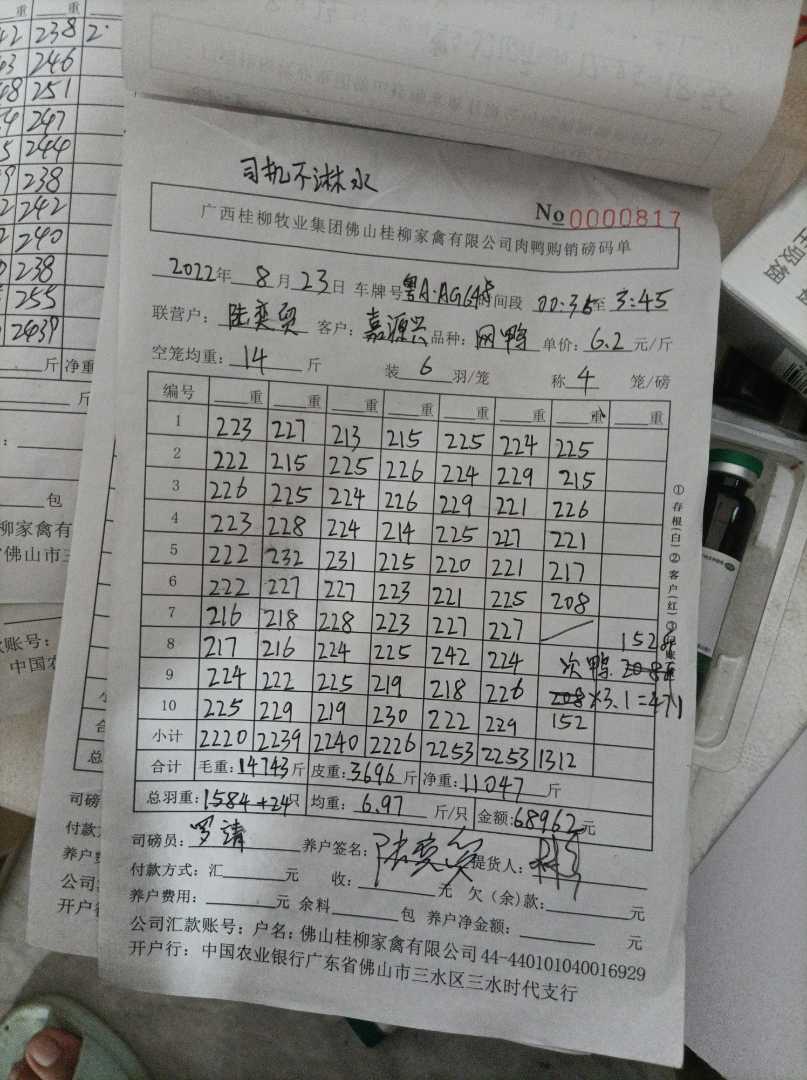 重 重
238
246
251
247
244
238
242
240
238
255
2439
斤 净重
斤
包
柳家禽有
佛山市三
账号:
中国农
司机不淋水
No 0000817
广西桂柳牧业集团佛山桂柳家禽有限公司肉鸭购销磅码单
2022年 8月23日 车牌号 粤A·AG645 时间段 00:35至 3:45
联营户: 陆奕贸 客户: 嘉源兴 品种: 网鸭 单价: 6.2 元/斤
空笼均重: 14 斤 装 6 羽/笼 称 4 笼/磅
编号 重 重 重 重 重 重 重 重
1 223 227 213 215 225 224 225
2 222 215 225 226 224 229 215
3 226 225 224 226 229 221 226
4 223 228 224 214 225 227 221
5 222 232 231 225 220 221 217
6 222 227 227 223 221 225 208
7 216 218 228 223 227 227
8 217 216 224 225 242 224 次鸭 152
9 224 222 225 219 218 226 208×3.1=471
10 225 229 219 230 222 229 152
小计 2220 2239 2240 2226 2253 2253 1312
合计 毛重: 14743斤 皮重: 3696斤 净重: 11047 斤
总羽重: 1584+24只 均重: 6.97 斤/只 金额: 68962元
司磅员: 罗靖 养户签名: 提货人:
付款方式: 汇 元 收: 元 欠(余)款: 元
养户费用: 元 余料 包 养户净金额: 元
公司汇款账号: 户名: 佛山桂柳家禽有限公司 44-440101040016929
开户行: 中国农业银行广东省佛山市三水区三水时代支行
①存根(白)②客户(红)③
司磅员
付款方
养户
公司
开户